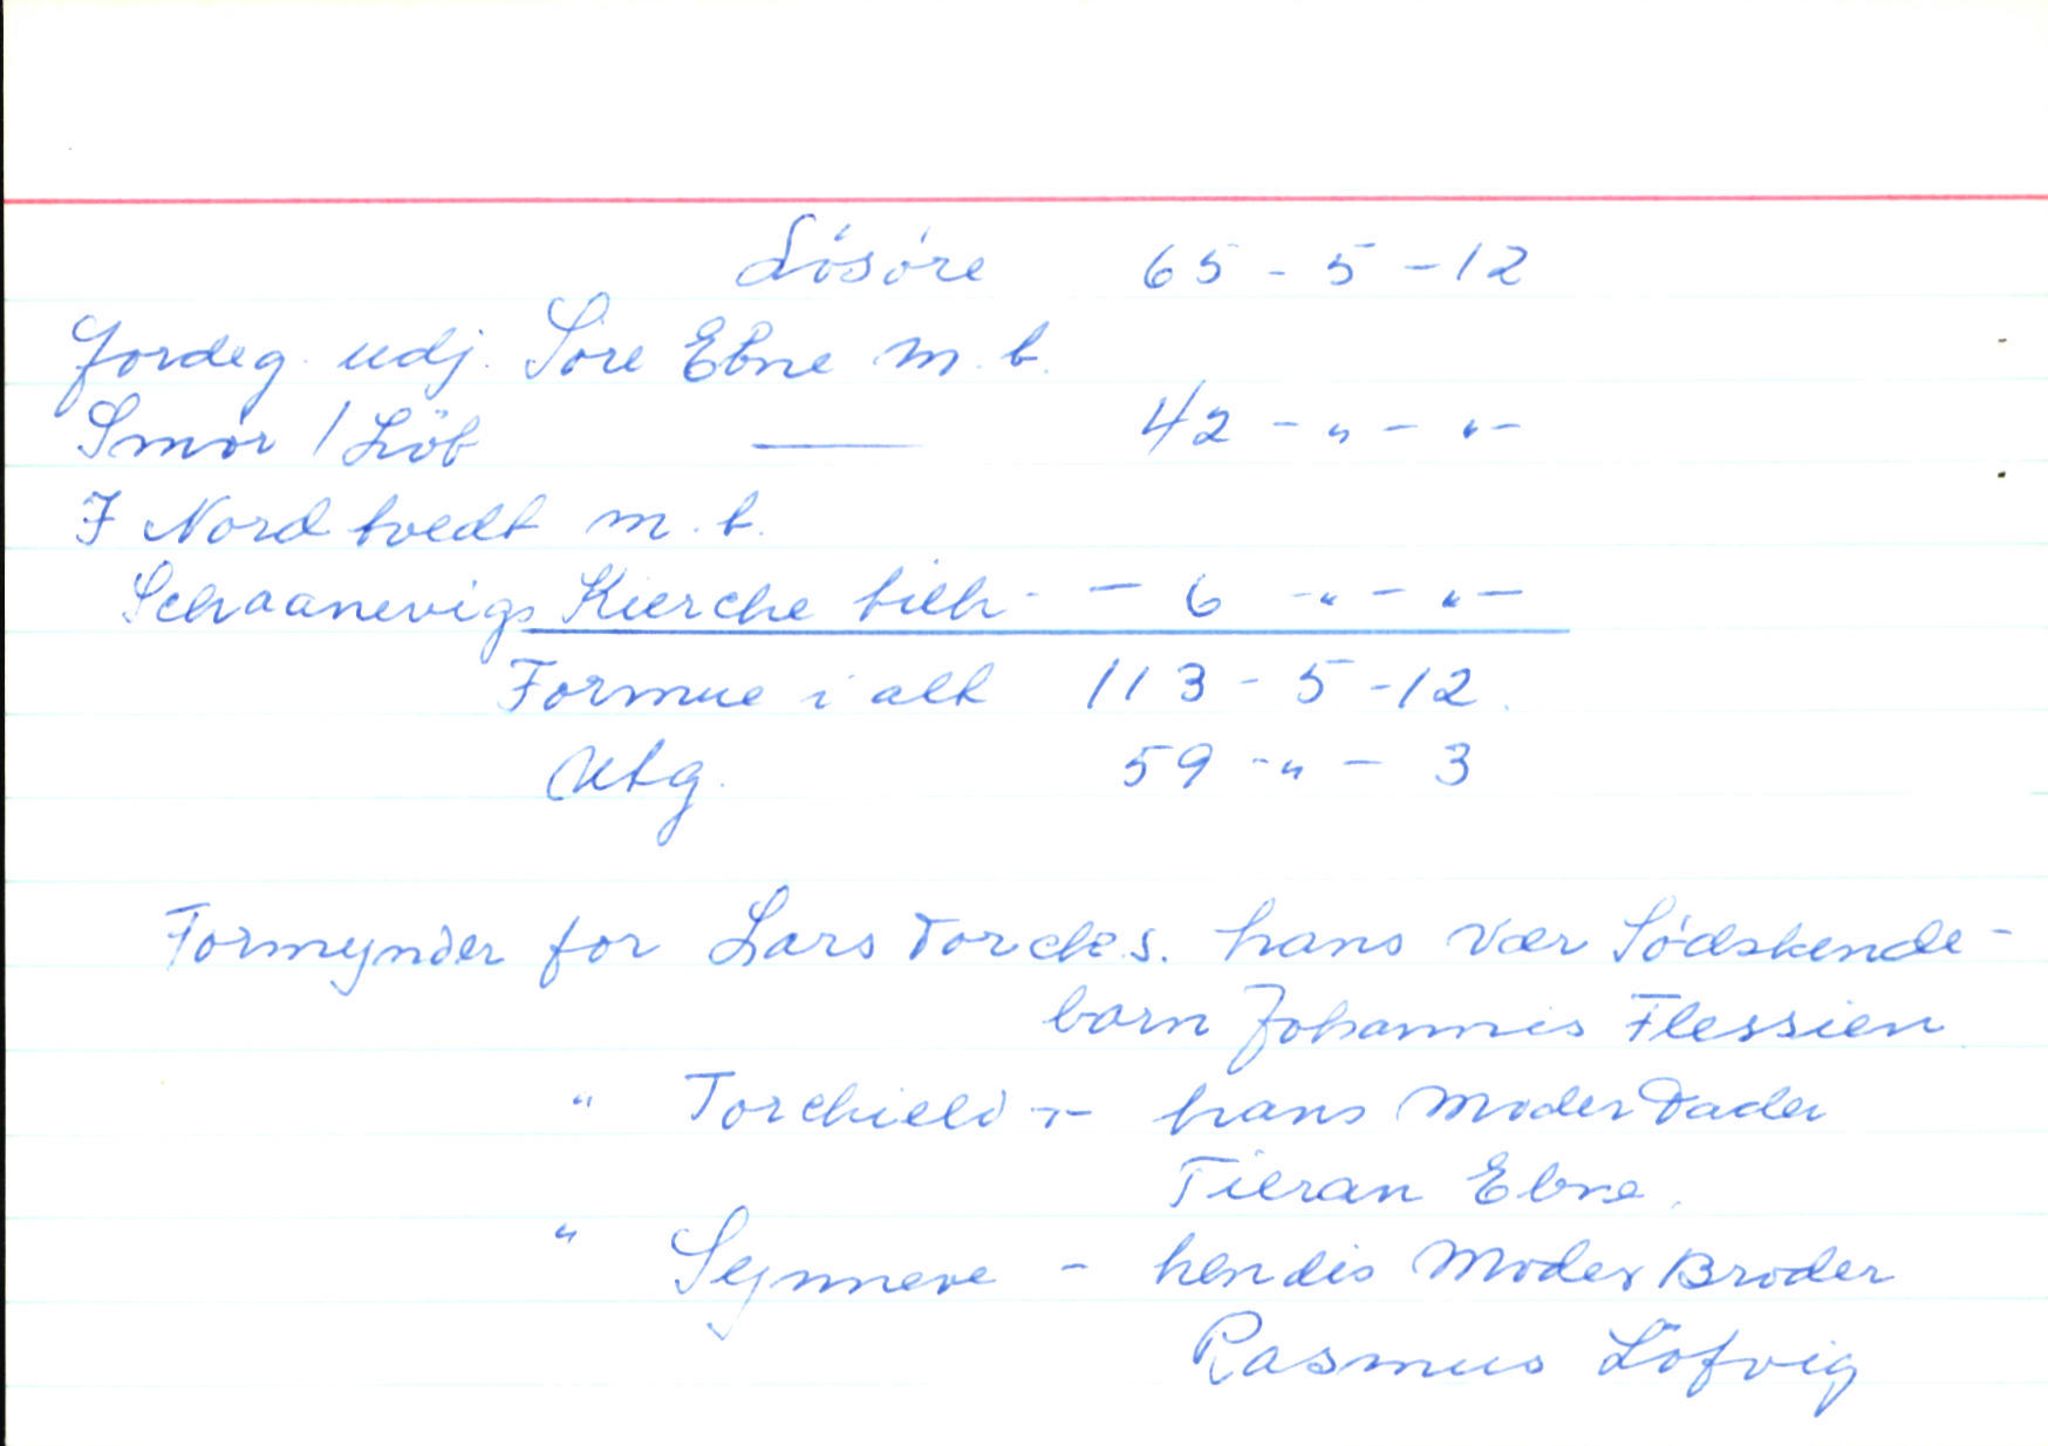 Lösöre 65 - 5 - 12
Jordeg. udj. Söre Ebne m. b.
Smör 1 Löb — 42 - " - " -
I Nordtvedt m. b.
Schaanevigs Kierche tilh. - - 6 - " - " -
Formue i alt 113 - 5 - 12.
Utg. 59 - " - 3
Formynder for Lars Torck.s. hans Vær Södskende-
barn Johannis Flessien
" Torchield - hans Moder Fader
Tieran Ebne.
" Synneve - hendis Moder Broder
Rasmus Löfvig